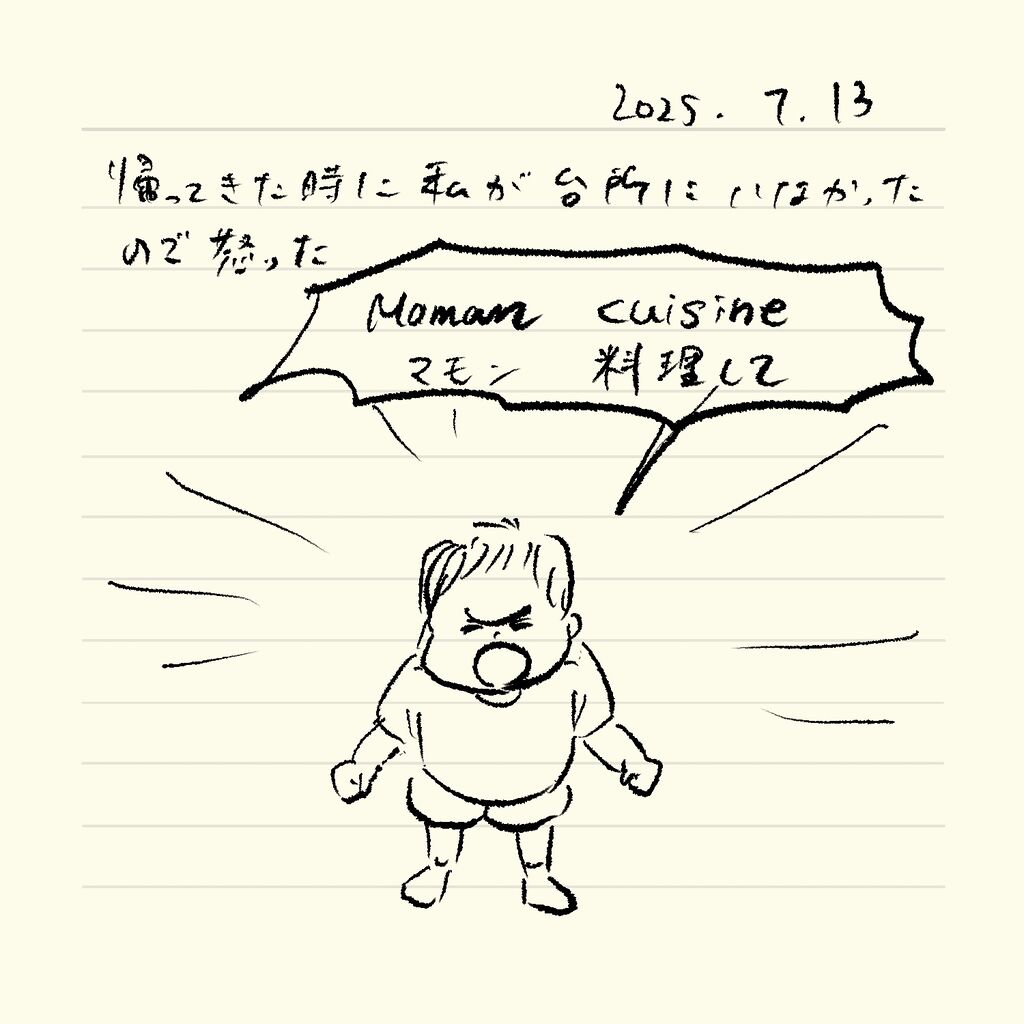 2025. 7. 13
帰ってきた時に私が台所にいなかった
ので怒った
Maman cuisine
マモン 料理して